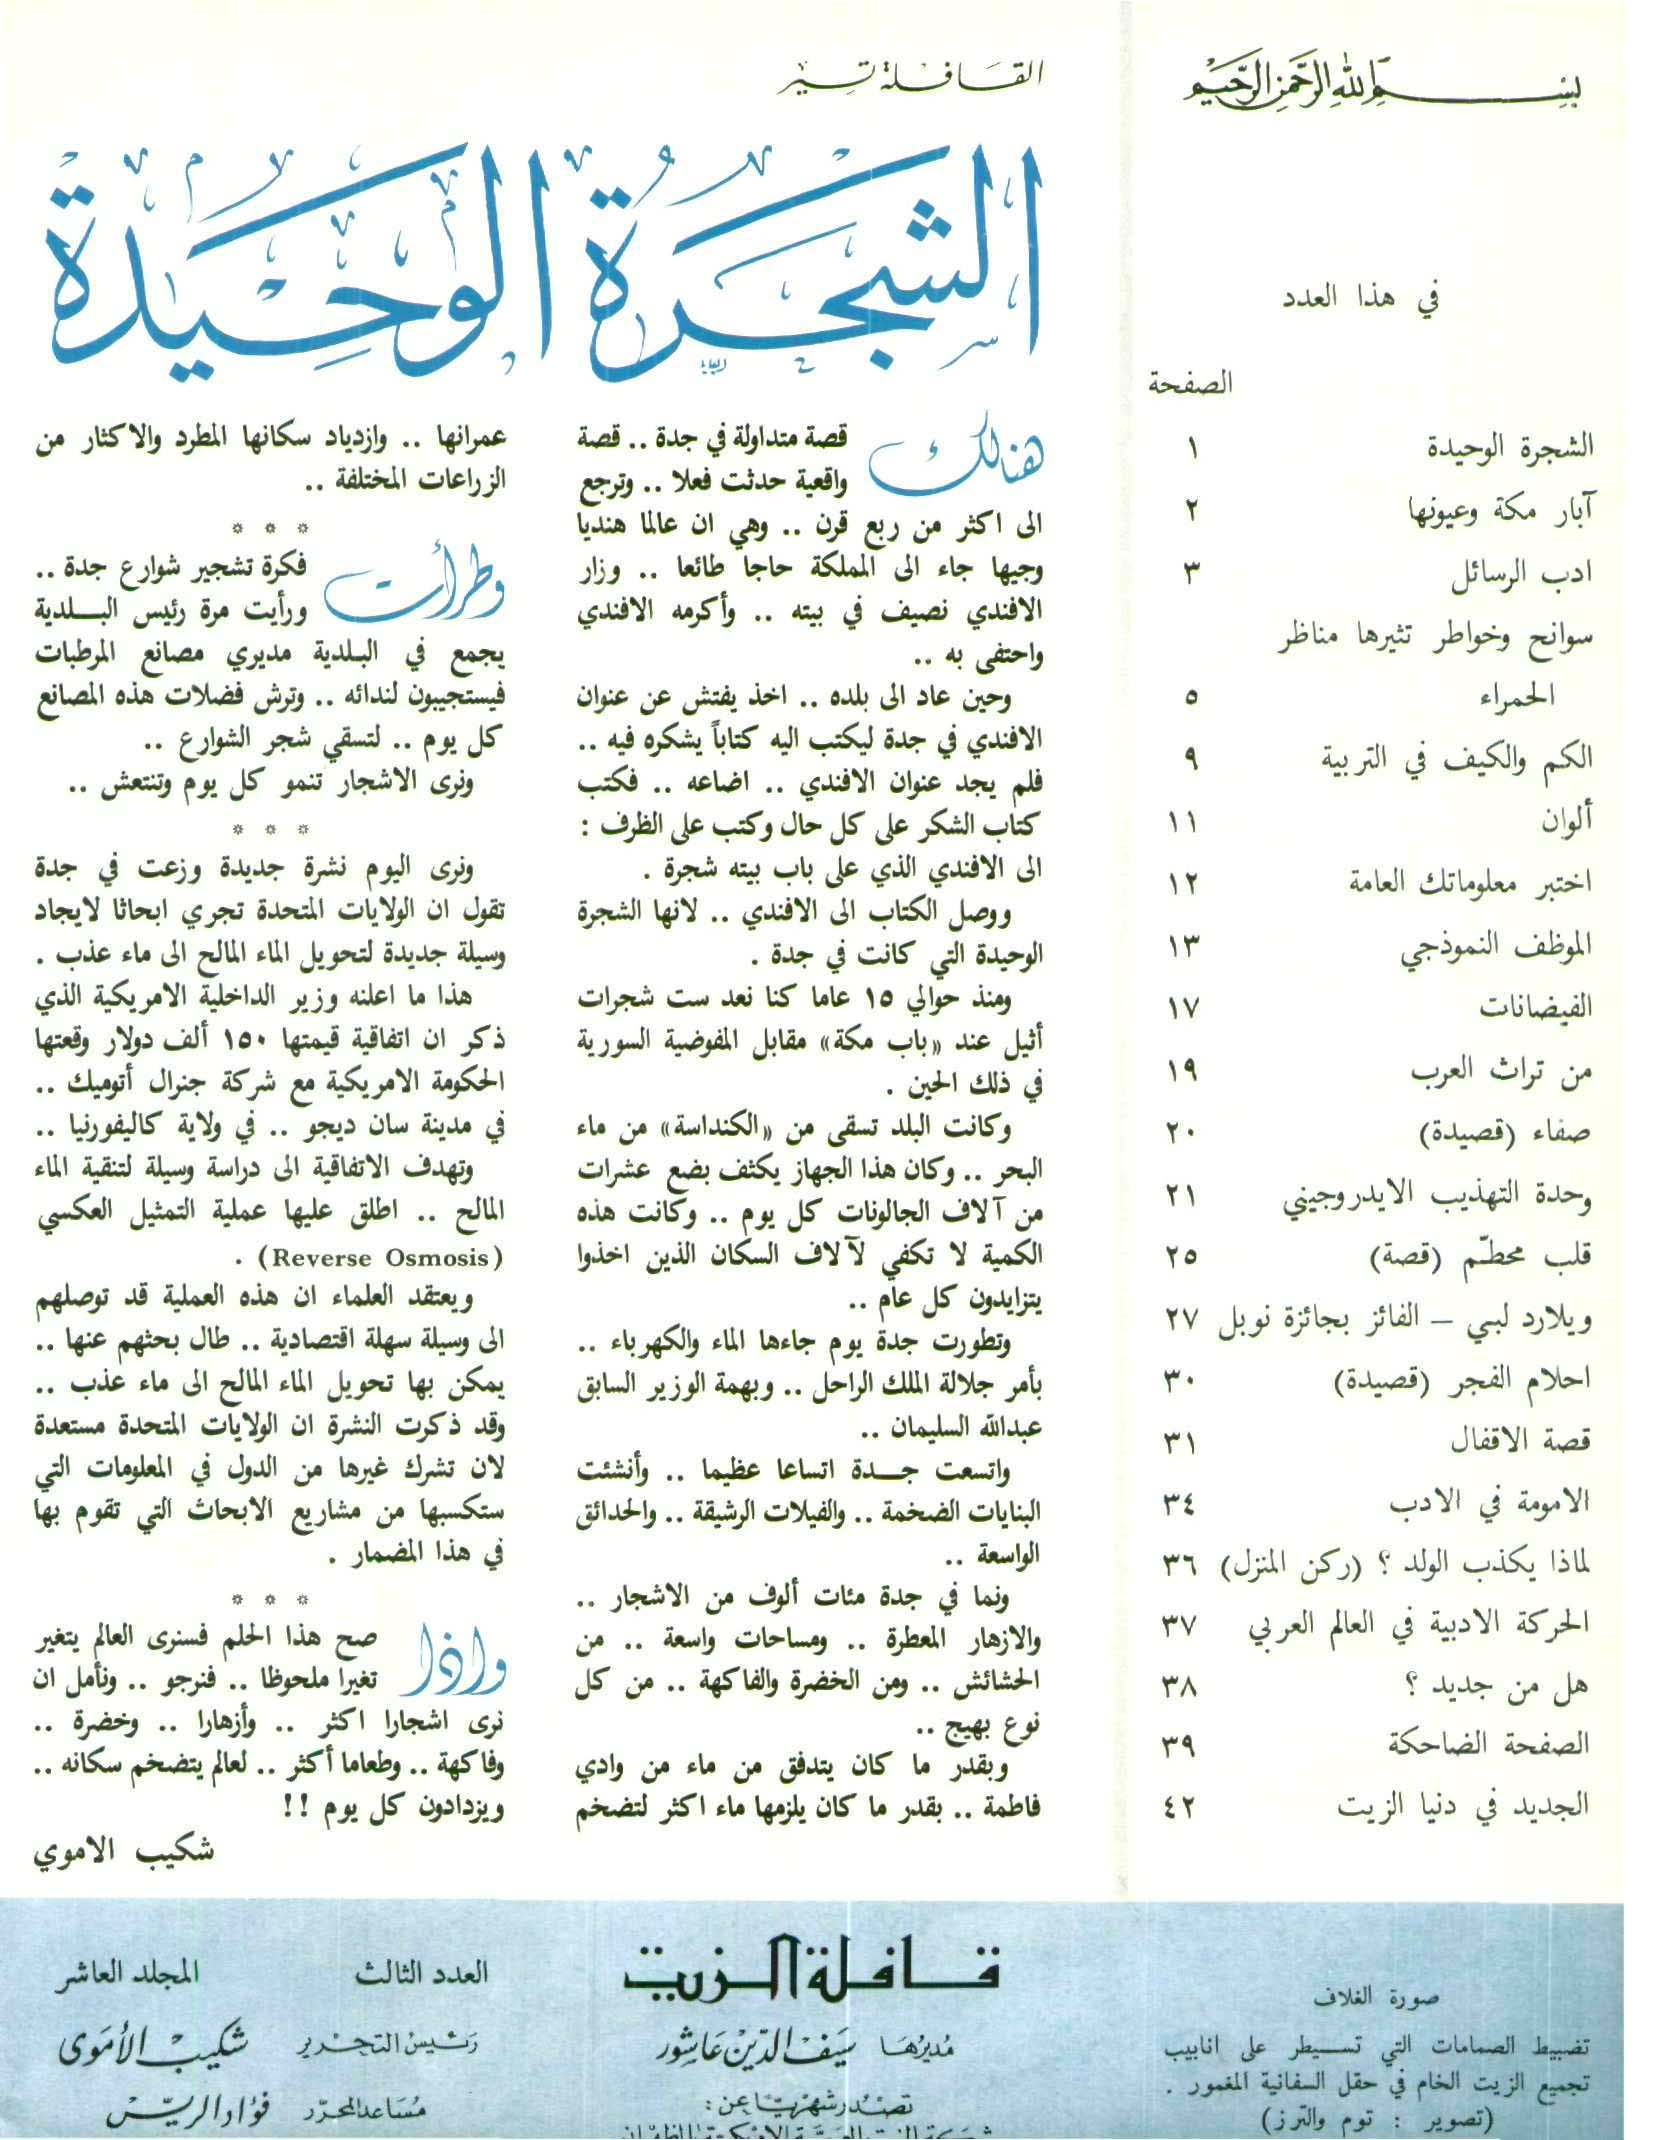 بسم الله الرحمن الرحيم
في هذا العدد
الصفحة
الشجرة الوحيدة ١
آبار مكة وعيونها ٢
ادب الرسائل ٣
سوانح وخواطر تثيرها مناظر
الحمراء ٥
الكم والكيف في التربية ٩
ألوان ١١
اختبر معلوماتك العامة ١٢
الموظف النموذجي ١٣
الفيضانات ١٧
من تراث العرب ١٩
صفاء (قصيدة) ٢٠
وحدة التهذيب الايدروجيني ٢١
قلب محطّم (قصة) ٢٥
ويلارد لبي – الفائز بجائزة نوبل ٢٧
احلام الفجر (قصيدة) ٣٠
قصة الاقفال ٣١
الامومة في الادب ٣٤
لماذا يكذب الولد ؟ (ركن المنزل) ٣٦
الحركة الادبية في العالم العربي ٣٧
هل من جديد ؟ ٣٨
الصفحة الضاحكة ٣٩
الجديد في دنيا الزيت ٤٢
القافلة تسير
الشجرة الوحيدة
هنالك قصة متداولة في جدة .. قصة
واقعية حدثت فعلا .. وترجع
الى اكثر من ربع قرن .. وهي ان عالما هنديا
وجيها جاء الى المملكة حاجا طائعا .. وزار
الافندي نصيف في بيته .. وأكرمه الافندي
واحتفى به ..
وحين عاد الى بلده .. اخذ يفتش عن عنوان
الافندي في جدة ليكتب اليه كتاباً يشكره فيه ..
فلم يجد عنوان الافندي .. اضاعه .. فكتب
كتاب الشكر على كل حال وكتب على الظرف :
الى الافندي الذي على باب بيته شجرة .
ووصل الكتاب الى الافندي .. لانها الشجرة
الوحيدة التي كانت في جدة .
ومنذ حوالي ١٥ عاما كنا نعد ست شجرات
أثيل عند «باب مكة» مقابل المفوضية السورية
في ذلك الحين .
وكانت البلد تسقى من «الكنداسة» من ماء
البحر .. وكان هذا الجهاز يكثف بضع عشرات
من آلاف الجالونات كل يوم .. وكانت هذه
الكمية لا تكفي لآلاف السكان الذين اخذوا
يتزايدون كل عام ..
وتطورت جدة يوم جاءها الماء والكهرباء ..
بأمر جلالة الملك الراحل .. وبهمة الوزير السابق
عبدالله السليمان ..
واتسعت جدة اتساعا عظيما .. وأنشئت
البنايات الضخمة .. والفيلات الرشيقة .. والحدائق
الواسعة ..
ونما في جدة مئات ألوف من الاشجار ..
والازهار المعطرة .. ومساحات واسعة .. من
الحشائش .. ومن الخضرة والفاكهة .. من كل
نوع بهيج ..
وبقدر ما كان يتدفق من ماء من وادي
فاطمة .. بقدر ما كان يلزمها ماء اكثر لتضخم
عمرانها .. وازدياد سكانها المطرد والاكثار من
الزراعات المختلفة ..
* * *
وطرأت فكرة تشجير شوارع جدة ..
ورأيت مرة رئيس البلدية
يجمع في البلدية مديري مصانع المرطبات
فيستجيبون لندائه .. وترش فضلات هذه المصانع
كل يوم .. لتسقي شجر الشوارع ..
ونرى الاشجار تنمو كل يوم وتنتعش ..
* * *
ونرى اليوم نشرة جديدة وزعت في جدة
تقول ان الولايات المتحدة تجري ابحاثا لايجاد
وسيلة جديدة لتحويل الماء المالح الى ماء عذب .
هذا ما اعلنه وزير الداخلية الامريكية الذي
ذكر ان اتفاقية قيمتها ١٥٠ ألف دولار وقعتها
الحكومة الامريكية مع شركة جنرال أتوميك ..
في مدينة سان ديجو .. في ولاية كاليفورنيا ..
وتهدف الاتفاقية الى دراسة وسيلة لتنقية الماء
المالح .. اطلق عليها عملية التمثيل العكسي
(Reverse Osmosis) .
ويعتقد العلماء ان هذه العملية قد توصلهم
الى وسيلة سهلة اقتصادية .. طال بحثهم عنها ..
يمكن بها تحويل الماء المالح الى ماء عذب ..
وقد ذكرت النشرة ان الولايات المتحدة مستعدة
لان تشرك غيرها من الدول في المعلومات التي
ستكسبها من مشاريع الابحاث التي تقوم بها
في هذا المضمار .
* * *
واذا صح هذا الحلم فسنرى العالم يتغير
تغيرا ملحوظا .. فنرجو .. ونأمل ان
نرى اشجارا اكثر .. وأزهارا .. وخضرة ..
وفاكهة .. وطعاما أكثر .. لعالم يتضخم سكانه ..
ويزدادون كل يوم !!
شكيب الاموي
صورة الغلاف
تضبيط الصمامات التي تسيطر على انابيب
تجميع الزيت الخام في حقل السفانية المغمور .
(تصوير : توم والترز)
قافلة الزيت
مديرها سيف الدين عاشور
تصدر شهريا عن :
شركة الزيت العربية الامريكية بالظهران
العدد الثالث المجلد العاشر
رئيس التحرير شكيب الأموي
مساعد المحرر فؤاد الريس